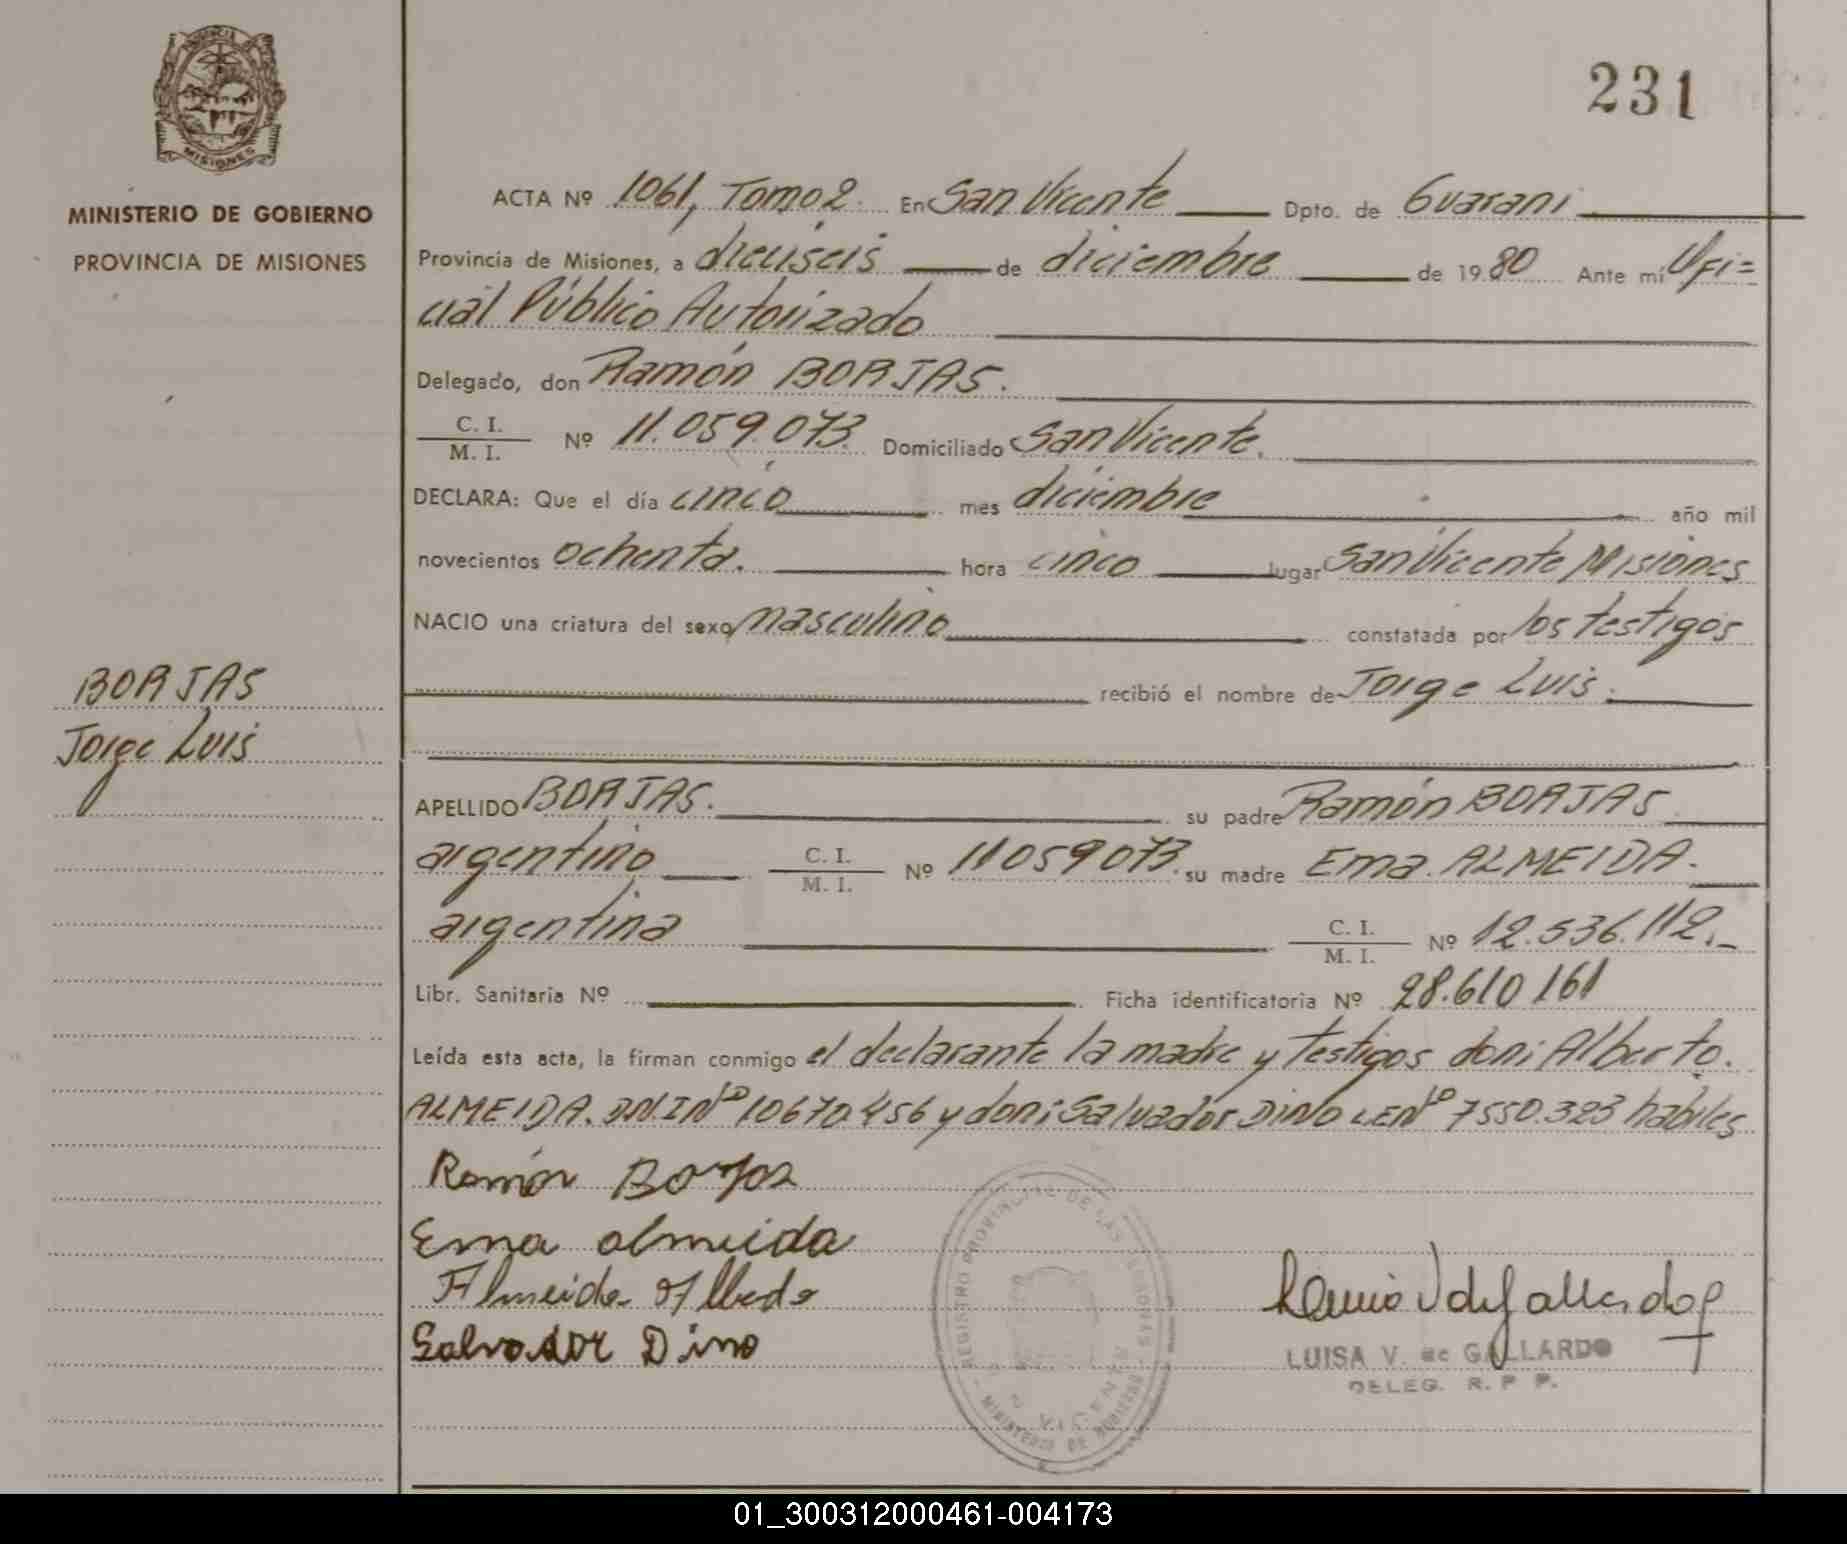 231
PROVINCIA DE
MISIONES
MINISTERIO DE GOBIERNO
PROVINCIA DE MISIONES
ACTA Nº 1061, Tomo 2. En San Vicente Dpto. de Guarani
Provincia de Misiones, a dieciseis de diciembre de 1980 Ante mí Ofi=
cial Público Autorizado
Delegado, don Ramón BORJAS.
C. I.
M. I. Nº 11.059.073. Domiciliado San Vicente.
DECLARA: Que el día cinco mes diciembre año mil
novecientos ochenta. hora cinco lugar San Vicente Misiones
NACIO una criatura del sexo masculino constatada por los testigos
recibió el nombre de Jorge Luis.
BORJAS
Jorge Luis
APELLIDO BORJAS. su padre Ramón BORJAS
argentino C. I.
M. I. Nº 11059073. su madre Ema. ALMEIDA.
argentina C. I.
M. I. Nº 12.536.112.-
Libr. Sanitaria Nº Ficha identificatoria Nº 28.610 161
Leída esta acta, la firman conmigo el declarante la madre y testigos don: Alberto.
ALMEIDA. DN.I Nº 10670.456 y don: Salvador DINO L.E Nº 7550.323 habiles
Ramón Borjas
Ema almeida
Almeida
Salvador Dino
REGISTRO PROVINCIAL DE LAS PERSONAS
MINISTERIO DE GOBIERNO
LUISA V. de GALLARDO
DELEG. R. P P.
01_300312000461-004173